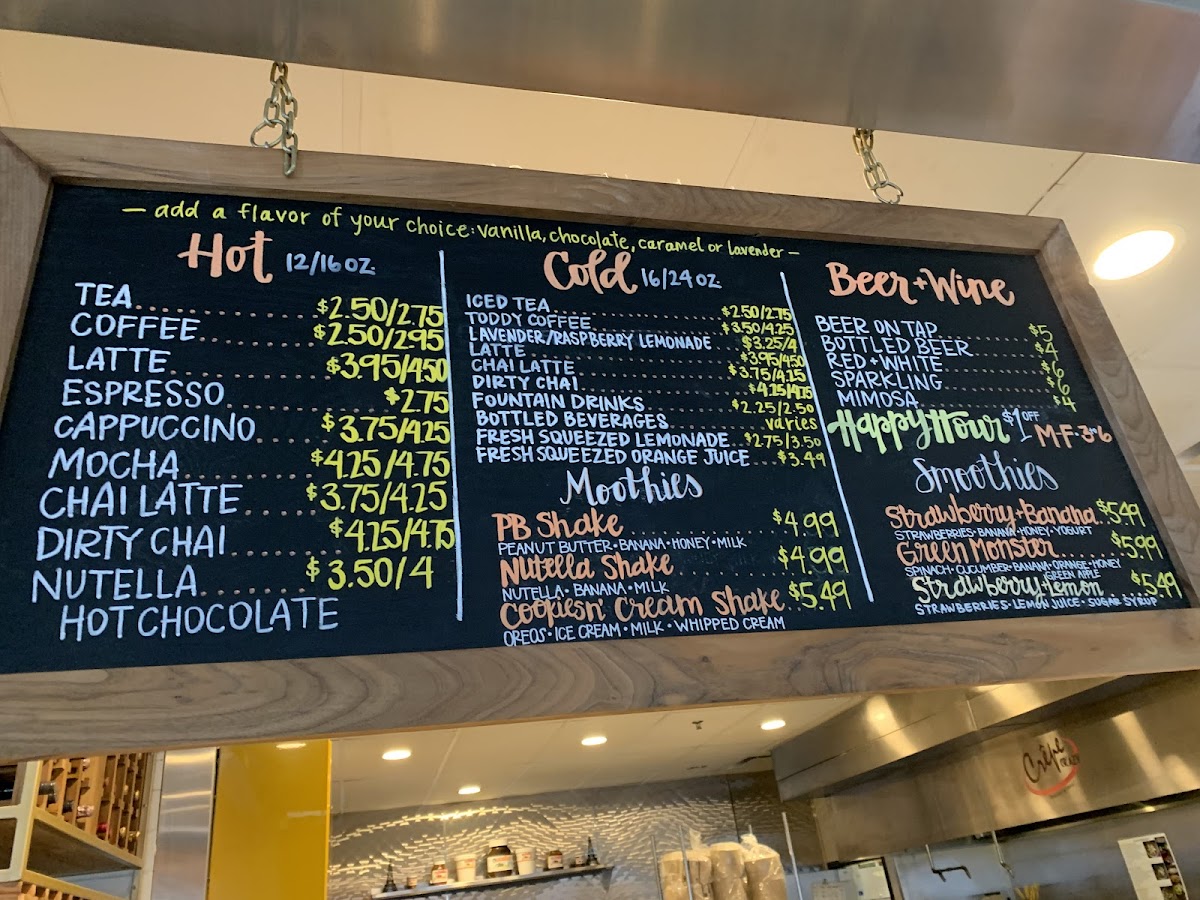 — add a flavor of your choice: vanilla, chocolate, caramel or lavender —
Hot 12/16 OZ.
TEA..................$2.50/2.75
COFFEE..................$2.50/2.95
LATTE..................$3.95/4.50
ESPRESSO..................$2.75
CAPPUCCINO....$3.75/4.25
MOCHA..................$4.25/4.75
CHAI LATTE........$3.75/4.25
DIRTY CHAI..........$4.25/4.75
NUTELLA..........$3.50/4
HOT CHOCOLATE
Cold 16/24 OZ.
ICED TEA..................$2.50/2.75
TODDY COFFEE..................$3.50/4.25
LAVENDER/RASPBERRY LEMONADE....$3.25/4
LATTE..................$3.95/4.50
CHAI LATTE..................$3.75/4.25
DIRTY CHAI..................$4.25/4.75
FOUNTAIN DRINKS..........$2.25/2.50
BOTTLED BEVERAGES..........varies
FRESH SQUEEZED LEMONADE..$2.75/3.50
FRESH SQUEEZED ORANGE JUICE....$3.49
Moothies
PB Shake..................$4.99
PEANUT BUTTER•BANANA•HONEY•MILK
Nutella Shake..........$4.99
NUTELLA•BANANA•MILK
Cookies n' Cream Shake..$5.49
OREOS•ICE CREAM•MILK•WHIPPED CREAM
Beer+Wine
BEER ON TAP..........$5
BOTTLED BEER..........$4
RED+WHITE..........$6
SPARKLING..........$6
MIMOSA..........$4
Happy Hour $1 OFF M-F•3-6
Smoothies
Strawberry+Banana..$5.49
STRAWBERRIES•BANANA•HONEY•YOGURT
Green Monster........$5.99
SPINACH•CUCUMBER•BANANA•ORANGE•HONEY
GREEN APPLE
Strawberry+Lemon..$5.49
STRAWBERRIES•LEMON JUICE•SUGAR SYRUP
Crêpe